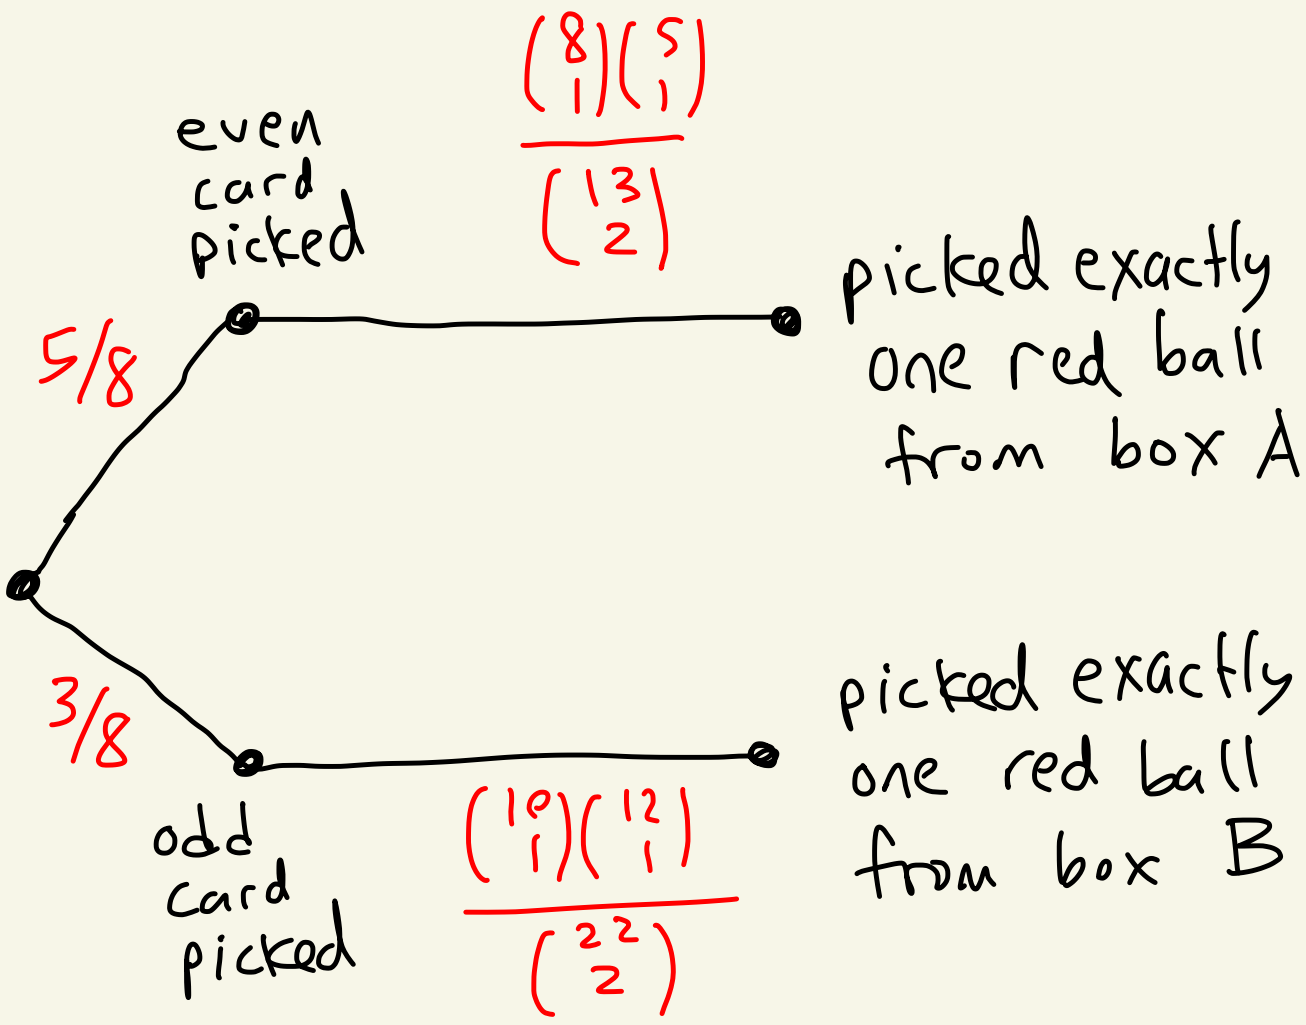 (8 1)(5 1)
(13 2)
even
card
picked
5/8
picked exactly
one red ball
from box A
3/8
odd
card
picked
(10 1)(12 1)
(22 2)
picked exactly
one red ball
from box B